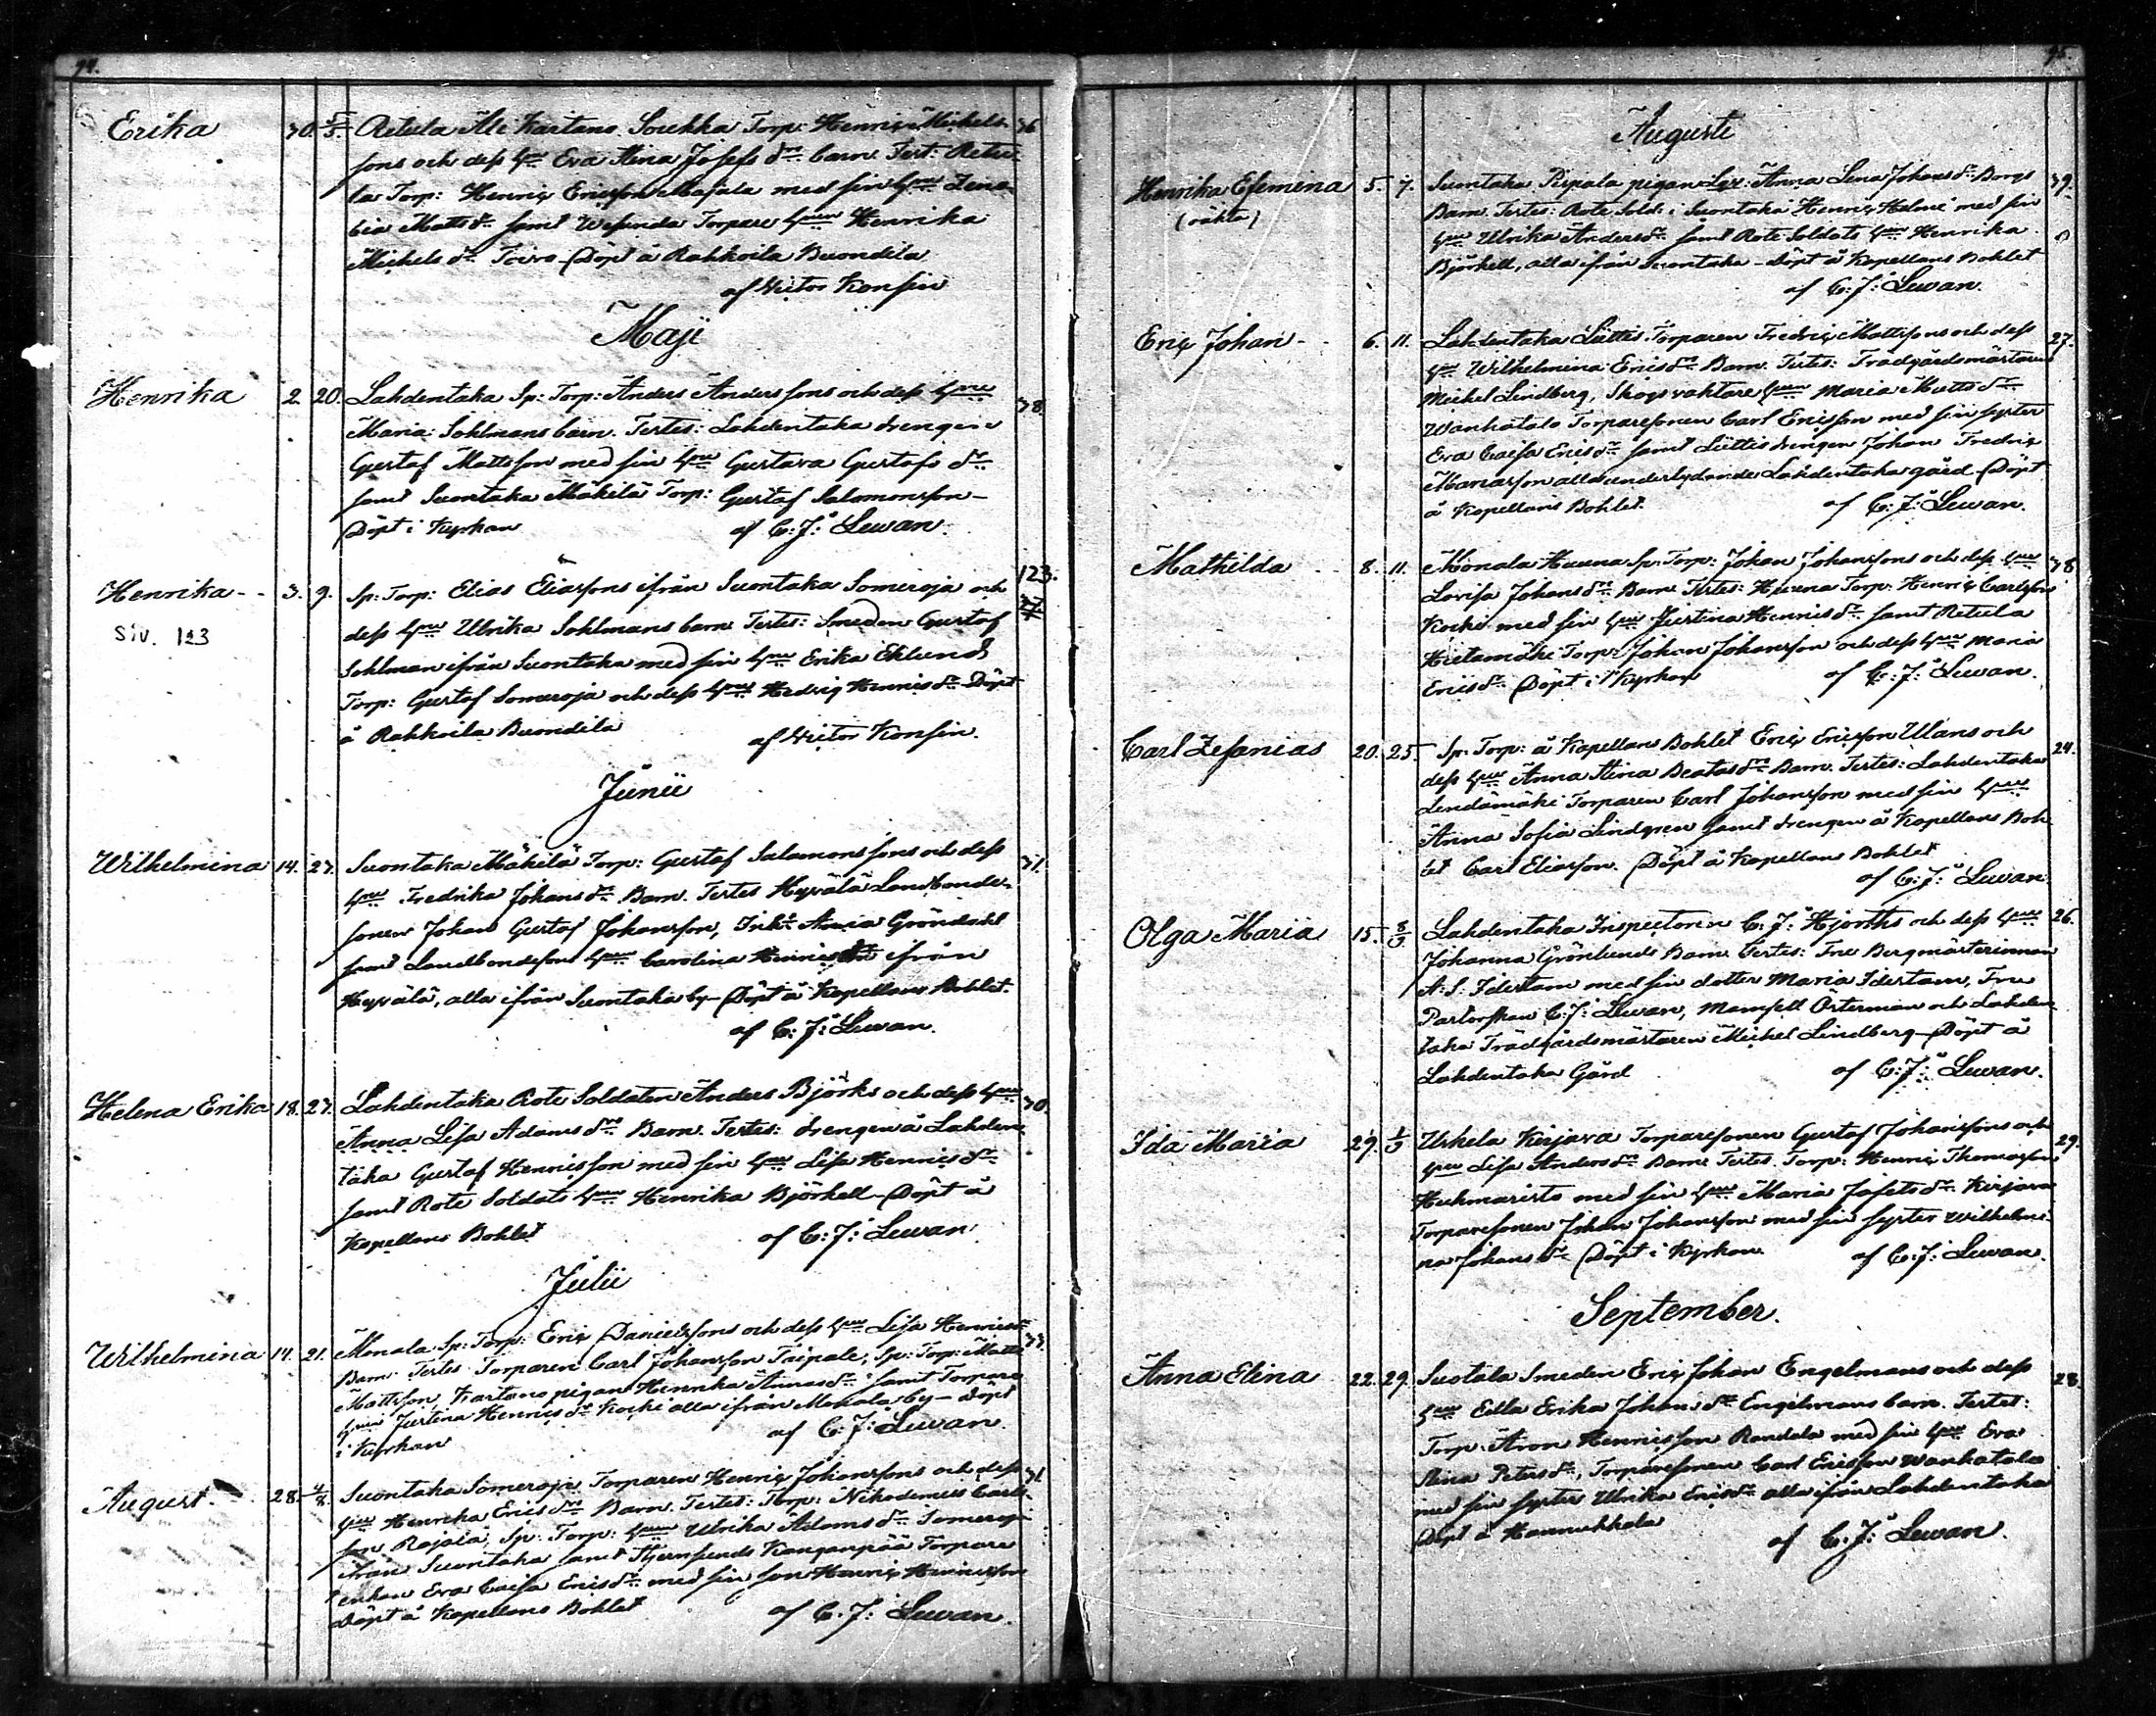 94.
Erika 30. 5/5. Retula Ali Kartano Soukka Torp: Henriç Mickels- 36
sons och dess hru Eva Stina Josefs dr barn. Test: Retu-
la Torp: Henriç Ericsson Majala med sin hru Zeno-
bia Matts dr samt Wesunda Torpare hrun Henrika
Mickels dr Toivo - Döpt å Rahkoila Buondila
af Victor Konsin
Maji
Henrika 2. 20. Lahdentaka Sp: Torp: Anders Anderssons och dess hru 38.
Maria Sohlmans barn. Testes: Lahdentaka drengen
Gustaf Mattsson med sin hru Gustava Gustafs dr
samt Suontaka Mäkilä Torp: Gustaf Salomonsson -
Döpt i Kyrkan af C: J: Lewan.
Henrika - - 3. 9. Sp: Torp: Elias Eliassons ifrån Suontaka Someroja och 123.
Siv. 123 dess hru Ulrika Sohlmans barn Testes: Smeden Gustaf
Sohlman ifrån Suontaka med sin hru Erika Eklund
Torp: Gustaf Someroja och dess hru Hedvig Henriks dr Döpt
å Rahkoila Buondila af Victor Konsin.
Junii
Wilhelmina 14. 27. Suontaka Mäkilä Torp: Gustaf Salomonssons och dess 31.
hru Fredrika Johans dr Barn. Testes Hyvälä Landbonde-
sonen Johan Gustaf Johansson, Gröndahl
samt Landbondesons hru Carolina ifrån
Hyvälä, alla ifrån Suontaka by - Döpt å Kapellans Bohlet.
af C: J: Lewan.
Helena Erika 18. 27. Lahdentaka Rote Soldaten Anders Björks och dess hru 30.
Anna Lisa Adams dr Barn. Testes: drengen å Lahden-
taka Gustaf Henricsson med sin hru Lisa Henrics dr
samt Rote Soldats hrun Henrika Björkell - Döpt å
Kapellans Bohlet af C: J: Lewan.
Julii
Wilhelmina 14. 21. Monala Sp: Torp: Eriç Danielssons och dess hru Lisa Henrics dr 33.
Barn Testes Torparen Carl Johansson Taipale, Sp: Torp: Matts
Mattsson, Kartano pigan Henrika Annas dr samt Torpare
hrun Justina Henrics dr Kocki alla ifrån Monala by - Döpt
i Kyrkan af C: J: Lewan.
August. 28. 4/8. Suontaka Someroja Torparen Henriç Johanssons och dess 31.
hru Henrika Erics dr Barn. Testes: Torp: Nikodemus Carls-
son Rajala, Sp: Torp: hrun Ulrika Adams dr Someroja
ifrån Suontaka samt Stjernsunds Kanganpää Torpare
enkan Eva Caisa Erics dr med sin son Henriç Henricsson
Döpt å Kapellans Bohlet af C: J: Lewan.
95.
Augusti
Henrika Efemina 5. 7. Suontaka Pispala pigan Anna Lena Johans dr Borgs 39.
(oäkta) Barn. Testes: Rote Sold: i Suontaka Henriç Helme med sin
hru Ulrika Anders dr samt Rote Soldats hru Henrika
Björkell, alla ifrån Suontaka - Döpt å Kapellans Bohlet
af C: J: Lewan.
Eriç Johan - 6. 11. Lahdentaka Lüttis Torparen Fredriç Mattssons och dess 27.
hru Wilhelmina Erics dr Barn. Testes: Trädgårdsmästaren
Mickel Lindberg, Skogsvaktare hrun Maria Matts dr
Wanhatalo Torparesonen Carl Ericsson med sin syster
Eva Caisa Erics dr samt Lüttis drengen Johan Fredriç
Mariasson alla underlydande Lahdentaka gård - Döpt
å Kapellans Bohlet. af C: J: Lewan.
Mathilda - - 8. 11. Monala Huuna Sp: Torp: Johan Johanssons och dess hru 38
Lovisa Johans dr Barn Testes: Huuna Torp: Henriç Carlsson
Kocki med sin hru Justina Henrics dr samt Retula
Hietamäki Torp: Johan Johansson och dess hru Maria
Erics dr Döpt i Kyrkan af C: J: Lewan.
Carl Zefanias 20. 25. Sp: Torp: å Kapellans Bohlet Eriç Ericsson Ulans och 24.
dess hru Anna Stina Beatas dr Barn. Testes: Lahdentaka
Lendämäki Torparen Carl Johansson med sin hru
Anna Sofia Lindgren samt drengen å Kapellans Boh-
let Carl Eliasson. Döpt å Kapellans Bohlet
af C: J: Lewan.
Olga Maria 15. 8/9 Lahdentaka Inspectoren C: J: Hjorths och dess hru 26.
Johanna Grönlunds Barn. Testes: Fru Bergmästarinnan
A: S: Idestam med sin dotter Maria Idestam, Fru
Pastorskan C: J: Lewan, Mamsell Osterman och Lahden-
taka Trädgårdsmästaren Mickel Lindberg - Döpt å
Lahdentaka Gård af C: J: Lewan.
Ida Maria 29. 1/9 Uskela Kirjava Torparesonen Gustaf Johanssons och 29.
hru Lisa Anders dr Barn Testes Torp: Henriç Thomasson
Huhmaristo med sin hru Maria Josefs dr Kirjava
Torparesonen Johan Johansson med sin syster Wilhelmi-
na Johans dr Döpt i Kyrkan af C: J: Lewan.
September.
Anna Elina 22. 29. Suotala Smeden Eriç Johan Engelmans och dess 28.
hru Edla Erika Johans dr Engelmans barn. Testes:
Torp: Aron Henricsson Randala med sin hru Eva
Stina Peters dr, Torparesonen Carl Ericsson Wanhatalo
med sin syster Ulrika Erics dr alla ifrån Lahdentaka
Döpt å Hannukkala af C: J: Lewan.